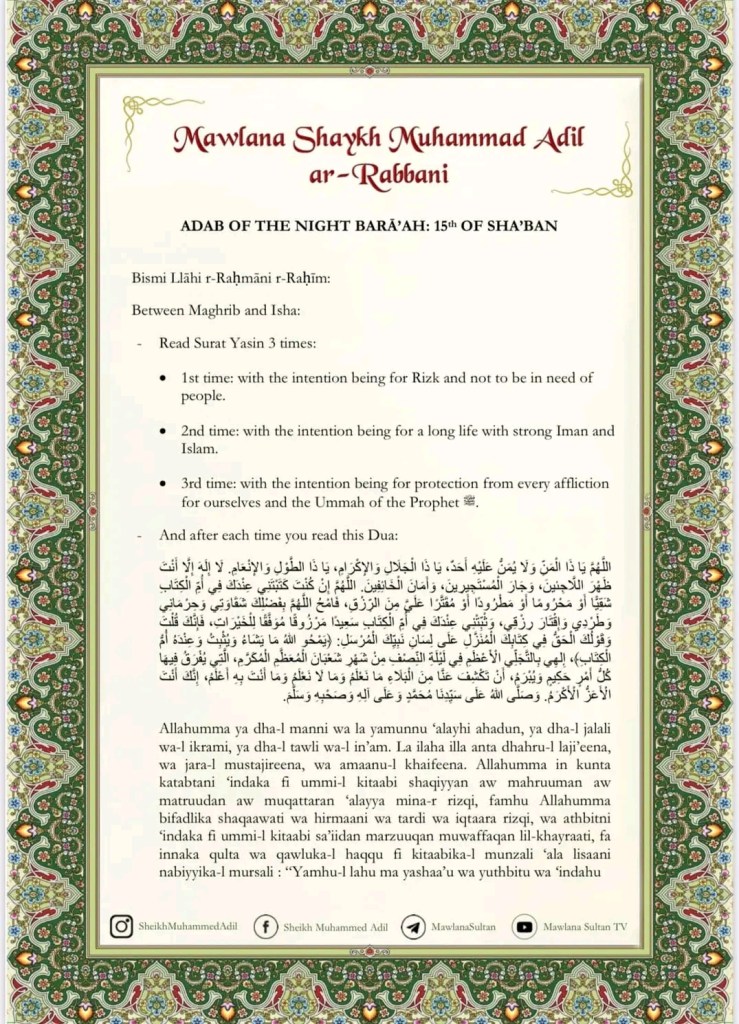 Mawlana Shaykh Muhammad Adil
ar-Rabbani
ADAB OF THE NIGHT BARĀ’AH: 15th OF SHA’BAN
Bismi Llāhi r-Raḥmāni r-Raḥīm:
Between Maghrib and Isha:
- Read Surat Yasin 3 times:
• 1st time: with the intention being for Rizk and not to be in need of
people.
• 2nd time: with the intention being for a long life with strong Iman and
Islam.
• 3rd time: with the intention being for protection from every affliction
for ourselves and the Ummah of the Prophet ﷺ.
- And after each time you read this Dua:
اللَّهُمَّ يَا ذَا الْمَنِّ وَلَا يُمَنُّ عَلَيْهِ أَحَدٌ، يَا ذَا الْجَلَالِ وَالْإِكْرَامِ، يَا ذَا الطَّوْلِ وَالْإِنْعَامِ. لَا إِلَهَ إِلَّا أَنْتَ
ظَهْرَ اللَّاجِئِينَ، وَجَارَ الْمُسْتَجِيرِينَ، وَأَمَانَ الْخَائِفِينَ. اللَّهُمَّ إِنْ كُنْتَ كَتَبْتَنِي عِنْدَكَ فِي أُمِّ الْكِتَابِ
شَقِيًّا أَوْ مَحْرُومًا أَوْ مَطْرُودًا أَوْ مُقَتَّرًا عَلَيَّ مِنَ الرِّزْقِ، فَامْحُ اللَّهُمَّ بِفَضْلِكَ شَقَاوَتِي وَحِرْمَانِي
وَطَرْدِي وَإِقْتَارَ رِزْقِي، وَثَبِّتْنِي عِنْدَكَ فِي أُمِّ الْكِتَابِ سَعِيدًا مَرْزُوقًا مُوَفَّقًا لِلْخَيْرَاتِ، فَإِنَّكَ قُلْتَ
وَقَوْلُكَ الْحَقُّ فِي كِتَابِكَ الْمُنَزَّلِ عَلَى لِسَانِ نَبِيِّكَ الْمُرْسَلِ: ﴿يَمْحُو اللهُ مَا يَشَاءُ وَيُثْبِتُ وَعِنْدَهُ أُمُّ
الْكِتَابِ﴾، إِلهِي بِالتَّجَلِّي الْأَعْظَمِ فِي لَيْلَةِ النِّصْفِ مِنْ شَهْرِ شَعْبَانَ الْمُعَظَّمِ الْمُكَرَّمِ، الَّتِي يُفْرَقُ فِيهَا
كُلُّ أَمْرٍ حَكِيمٍ وَيُبْرَمُ، أَنْ تَكْشِفَ عَنَّا مِنَ الْبَلَاءِ مَا نَعْلَمُ وَمَا لَا نَعْلَمُ وَمَا أَنْتَ بِهِ أَعْلَمُ، إِنَّكَ أَنْتَ
الْأَعَزُّ الْأَكْرَمُ. وَصَلَّى اللهُ عَلَى سَيِّدِنَا مُحَمَّدٍ وَعَلَى آلِهِ وَصَحْبِهِ وَسَلَّمَ.
Allahumma ya dha-l manni wa la yamunnu ‘alayhi ahadun, ya dha-l jalali
wa-l ikrami, ya dha-l tawli wa-l in’am. La ilaha illa anta dhahru-l laji’eena,
wa jara-l mustajireena, wa amaanu-l khaifeena. Allahumma in kunta
katabtani ‘indaka fi ummi-l kitaabi shaqiyyan aw mahruuman aw
matruudan aw muqattaran ‘alayya mina-r rizqi, famhu Allahumma
bifadlika shaqaawati wa hirmaani wa tardi wa iqtaara rizqi, wa athbitni
‘indaka fi ummi-l kitaabi sa’iidan marzuuqan muwaffaqan lil-khayraati, fa
innaka qulta wa qawluka-l haqqu fi kitaabika-l munzali ‘ala lisaani
nabiyyika-l mursali : “Yamhu-l lahu ma yashaa’u wa yuthbitu wa ‘indahu
SheikhMuhammedAdil Sheikh Muhammed Adil MawlanaSultan Mawlana Sultan TV